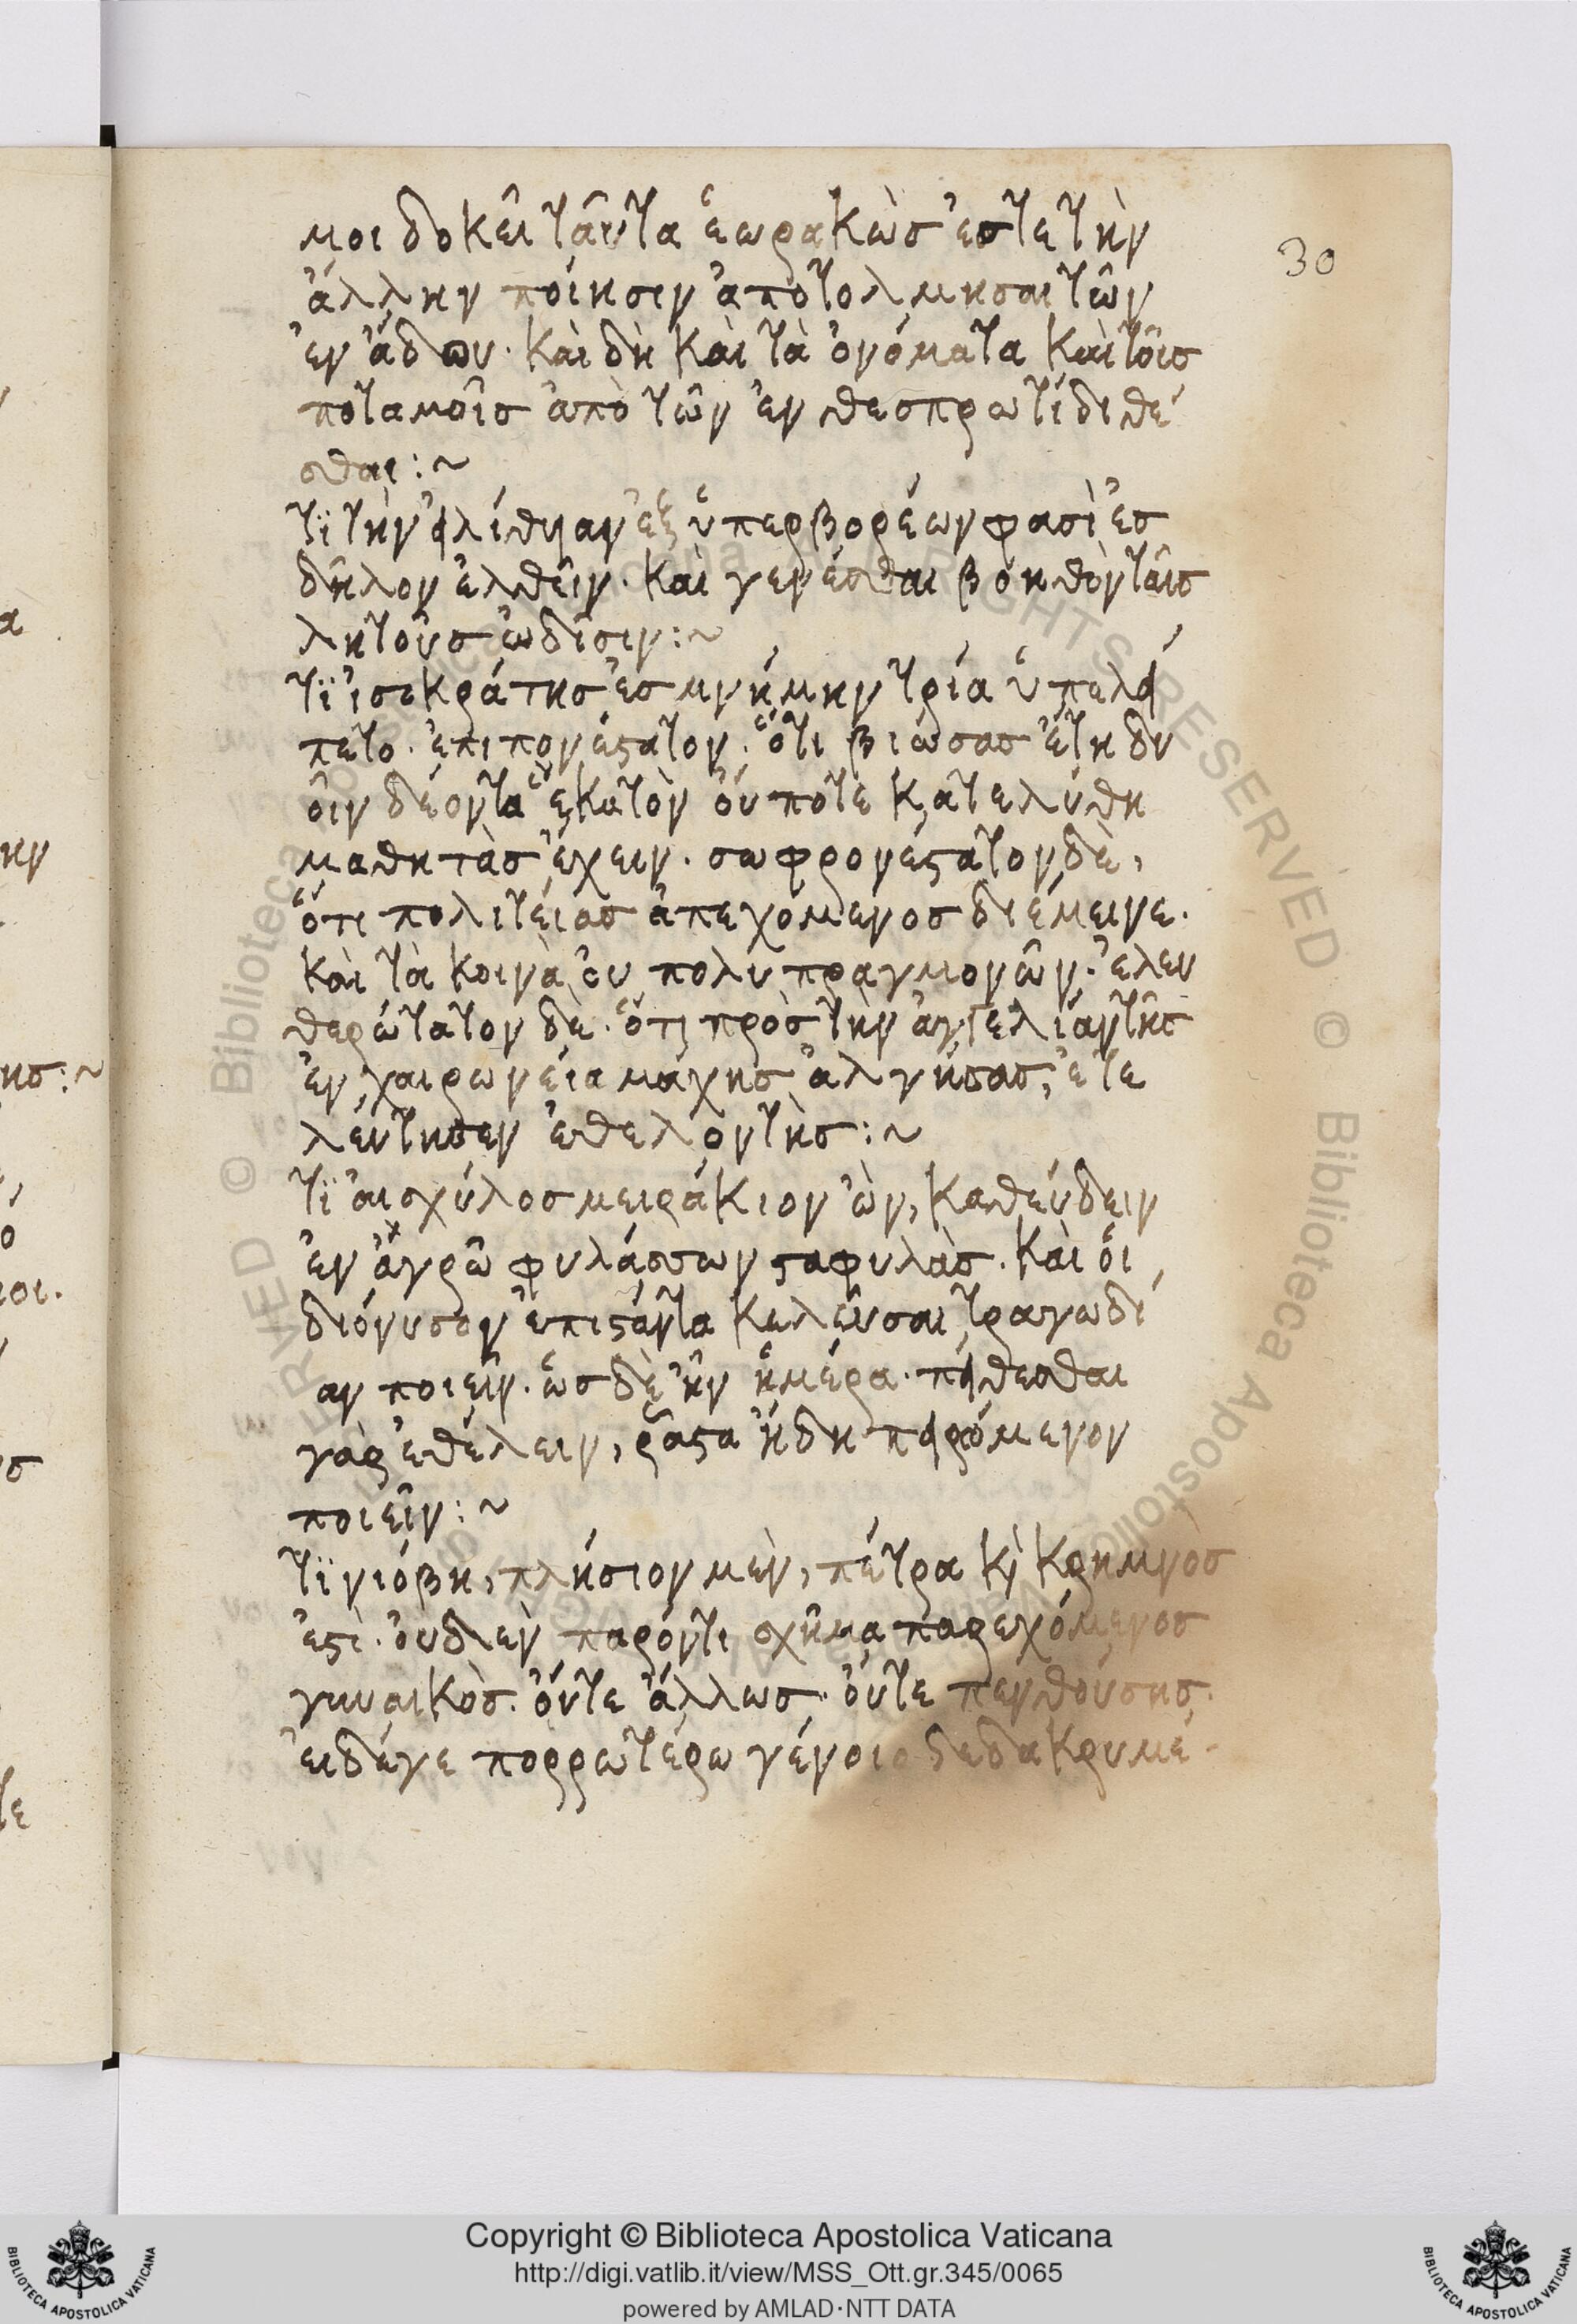 μοι δοκεῖ ταῦτα ἑωρακὼσ ἐστε τὴν
ἄλλην ποίησιν ἀποτολμησαι τῶν
ἐν ἅδου· καὶ δὴ καὶ τὰ ὀνόματα καὶ τοῖσ
ποταμοῖσ ἀπὸ τῶν ἐν θεσπρωτίδι θέ
σθαι :~
τϊ τὴν ἐξ ὑπερβορέων φασὶ ἐσ
δῆλον ἐλθεῖν· καὶ γενέσθαι βοηθὸν ταῖσ
λητοῦσ ὠδῖσιν :~
τϊ ἰσοκράτησ ἐσ μνήμην τρία ὑπελεί
πετο· ἐπιπονέστατον· ὅτι βιώσασ ἔτη δυ
οῖν δέοντα ἑκατὸν οὔποτε κατελύθη
μαθητὰσ ἔχειν· σωφρονέστατον δὲ,
ὅτι πολιτείασ ἀπεχόμενοσ διέμεινε·
καὶ τὰ κοινὰ οὐ πολυπραγμονῶν· ἐλευ
θερώτατον δὲ· ὅτι πρὸσ τὴν ἀγγελίαν τῆσ
ἐν χαιρωνεία μάχησ ἀλγήσασ, ἐτε
λεύτησεν ἐθελοντὴσ :~
τϊ αἰσχύλοσ μειράκιον ὢν, καθεύδειν
ἐν ἀγρῶ φυλάσσων σταφυλὰσ· καὶ οἱ
διόνυσον ἐπιστάντα κελεῦσαι τραγωδί
αν ποιεῖν· ὡσ δὲ ἦν ἡμέρα· πείθεσθαι
γὰρ ἐθέλειν, ῥᾶστα ἤδη πειρόμενον
ποιεῖν :~
τϊ νιόβη, πλήσιον μὲν, πέτρα κὶ κρημνοσ
ἐστὶ· οὐδὲν παρόντι σχῆμα παρεχόμενοσ
γυναικὸσ· οὔτε ἄλλωσ· οὔτε πενθούσησ·
εἰ δέγε πορρωτέρω γένοιο δεδακρυμέ
30
Copyright © Biblioteca Apostolica Vaticana
http://digi.vatlib.it/view/MSS_Ott.gr.345/0065
powered by AMLAD·NTT DATA